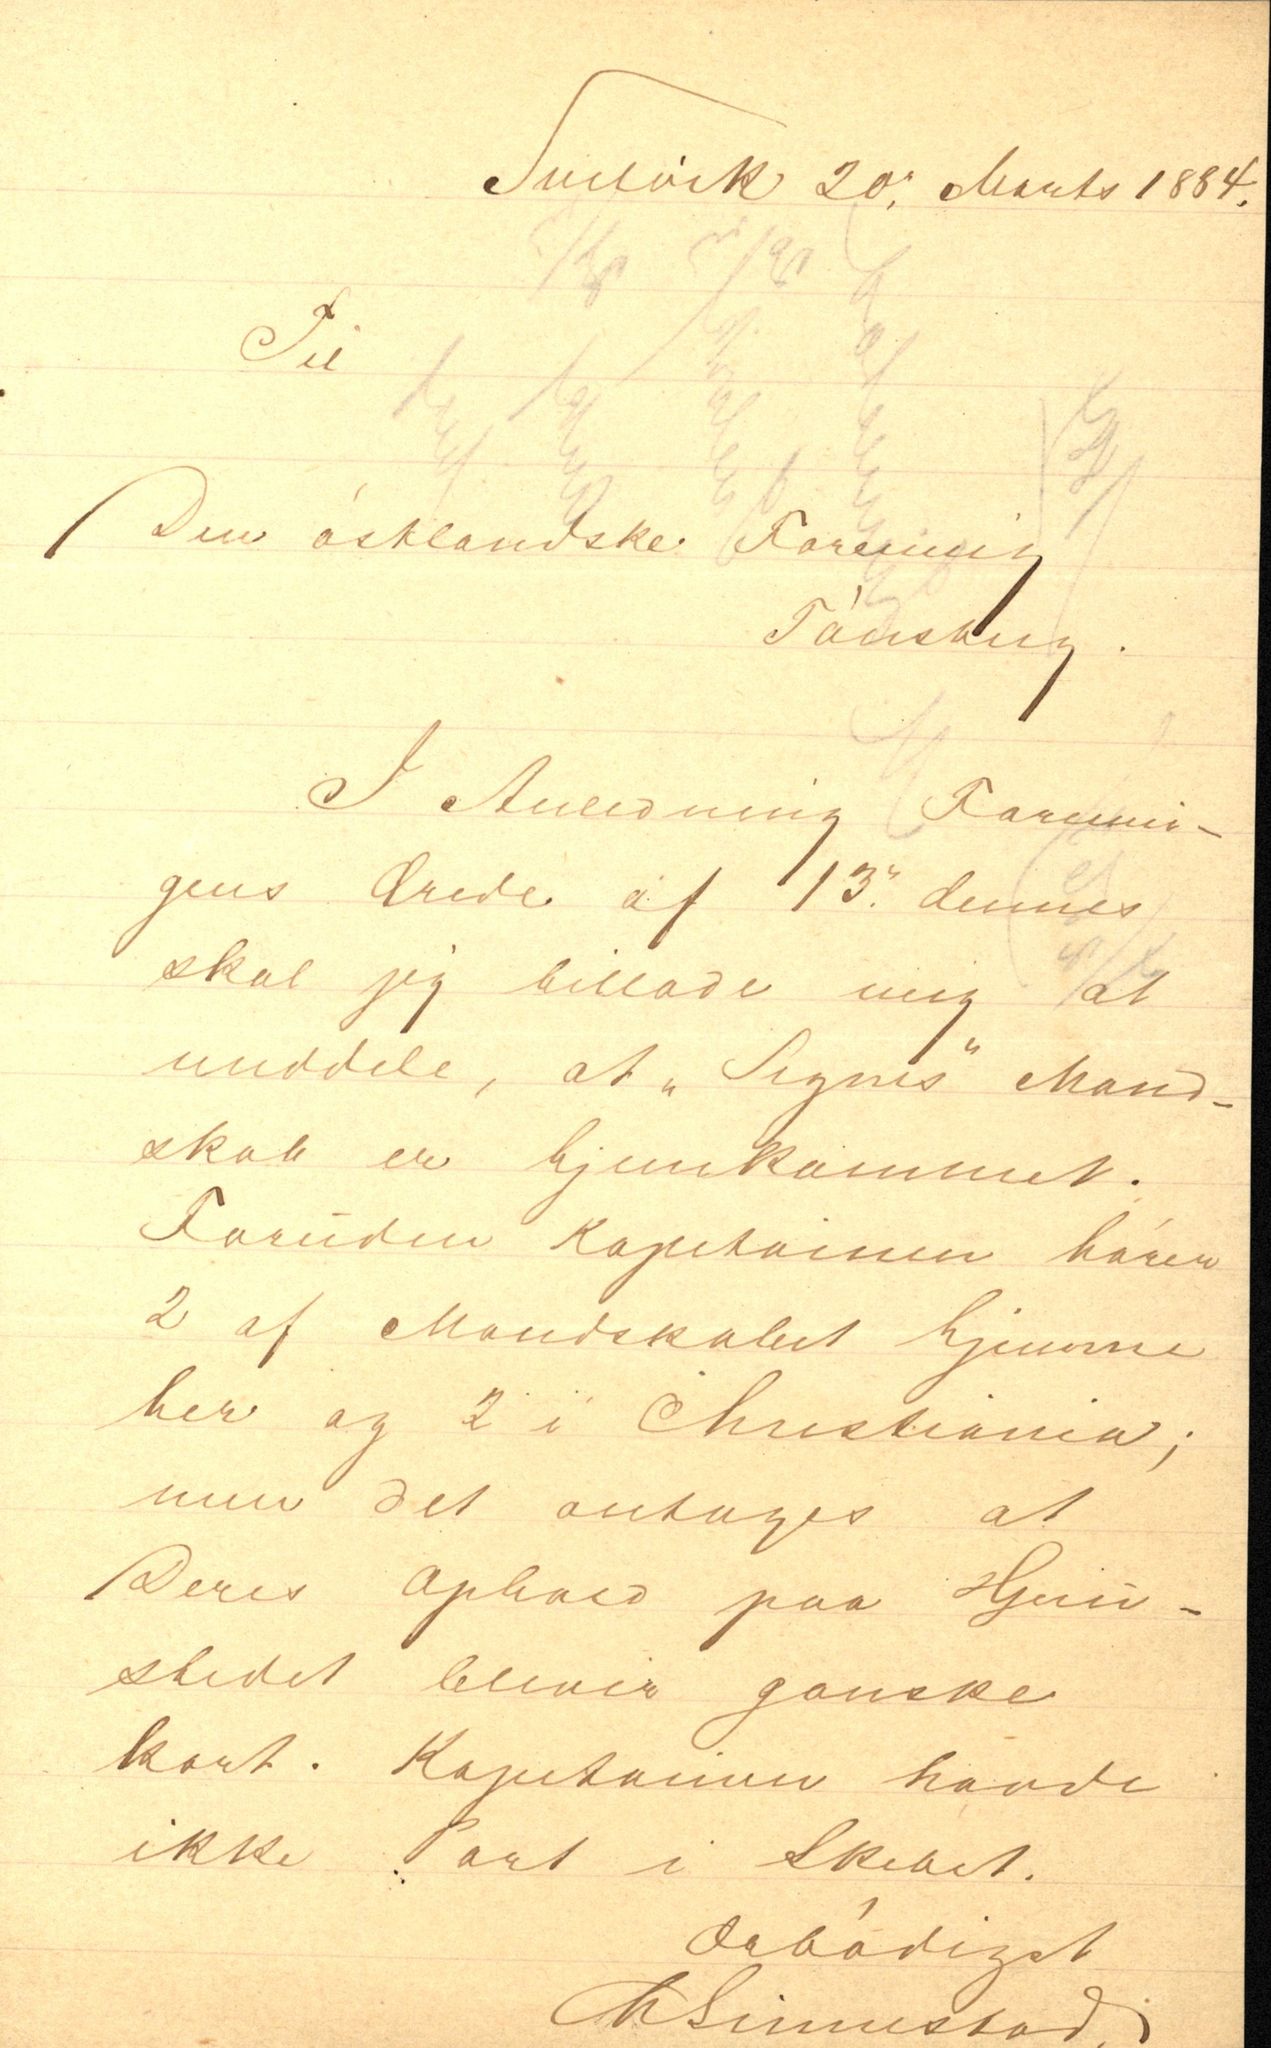 Svelvik 20. Marts 1884.
Til
Den östlandske Forening
Tönsberg.
I Anledning Foreni-
gens Ærede af 13. dennes
skal jeg tillade mig at
meddele, at „Signes" Mand-
skab er hjemkommet.
Foruden Kapitainen hörer
2 af Mandskabet hjemme
her og 2 i Christiania;
men det antages at
Deres Ophold paa Hjem-
stedet blevir ganske
kort. Kapitainen havde
ikke Part i Skibet.
Ærbödigst